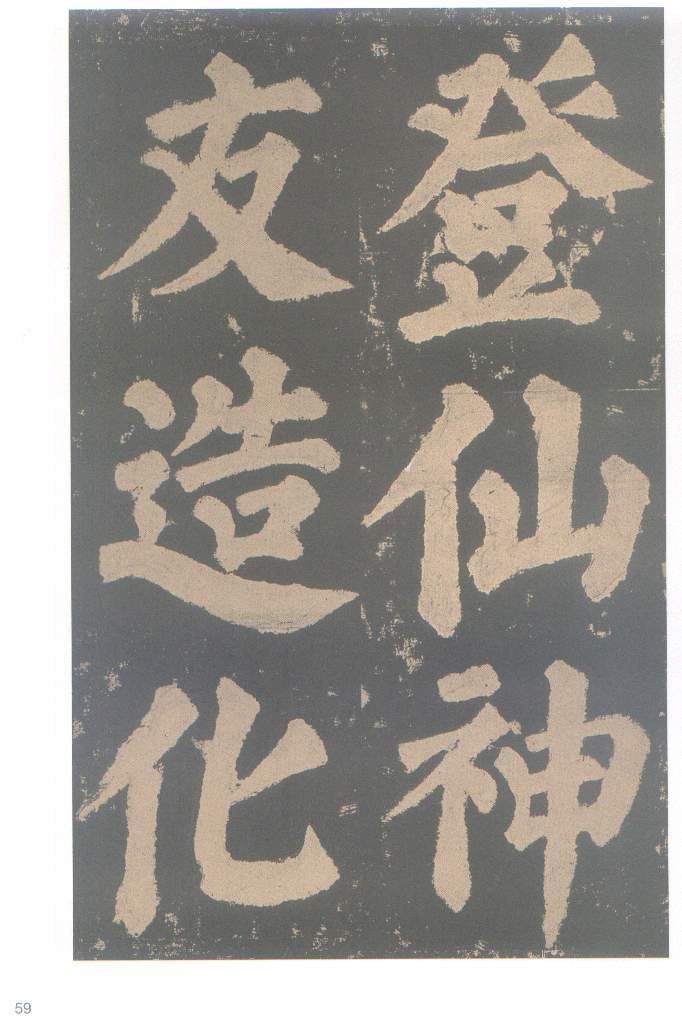 登仙神
友造化
59